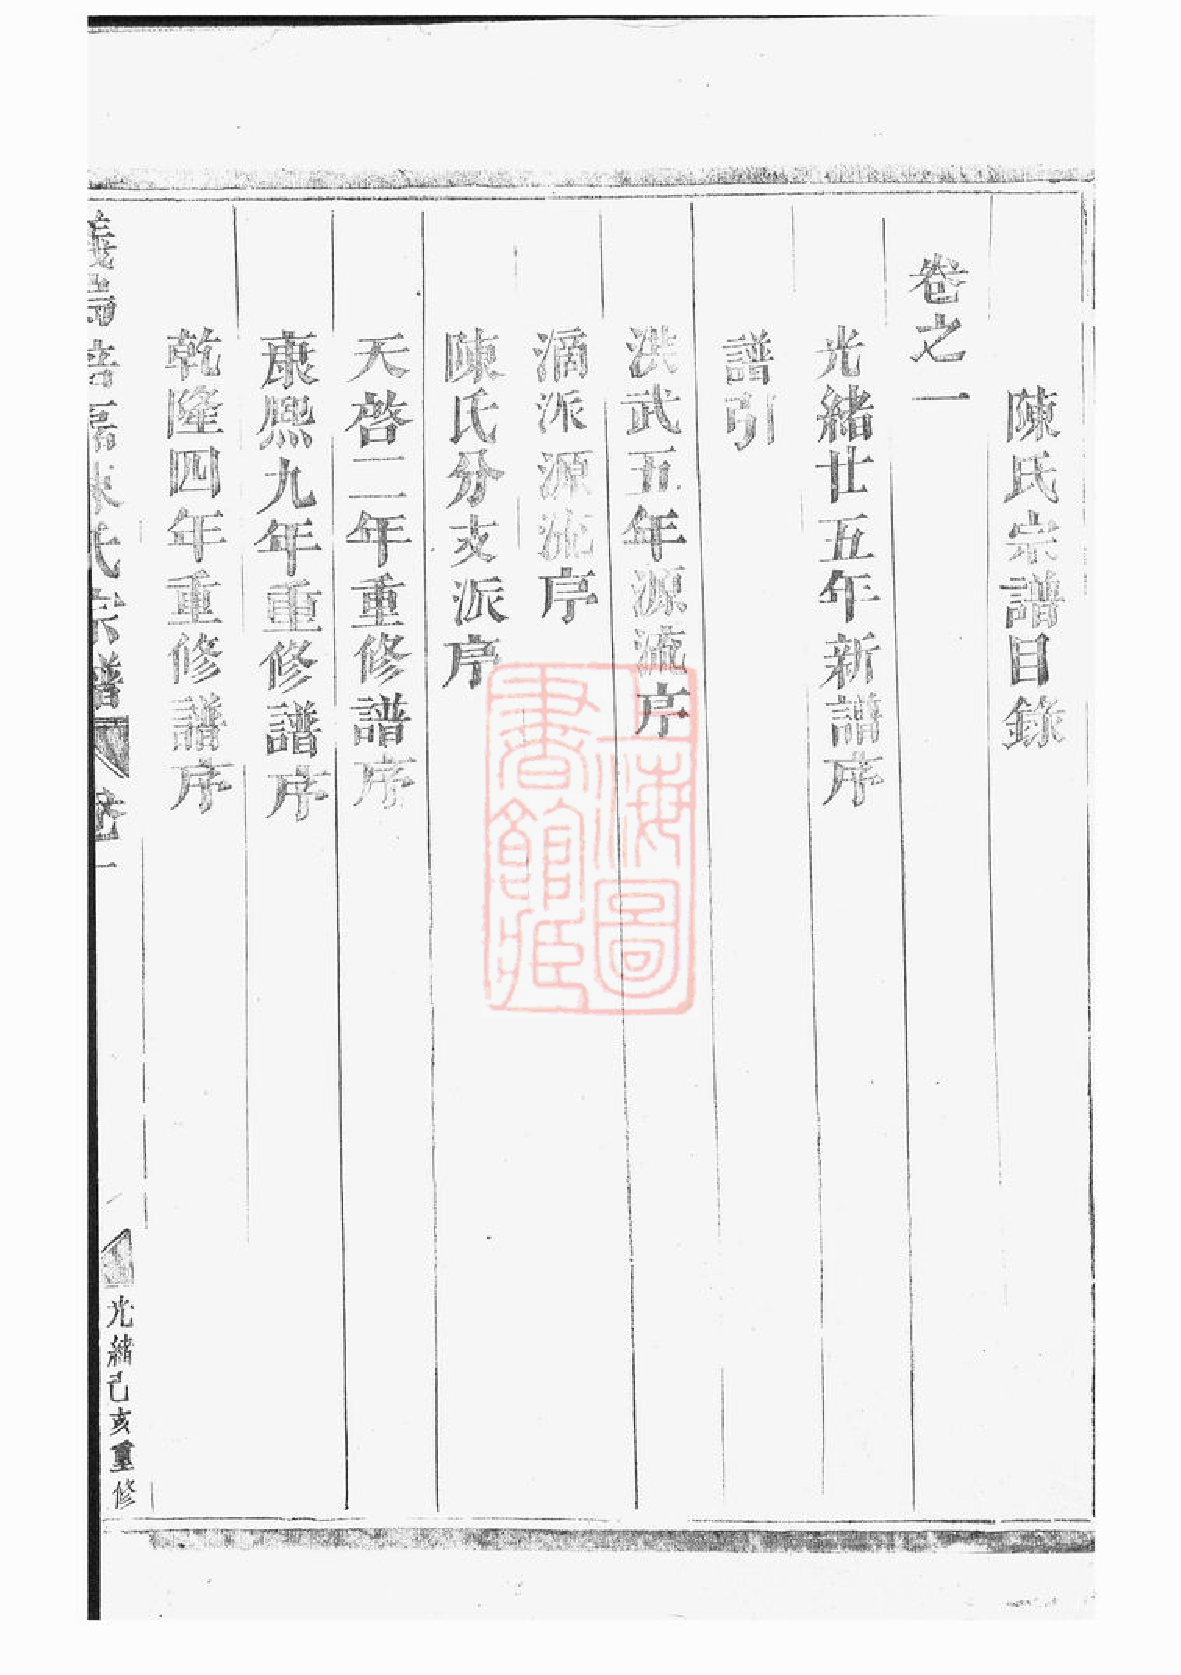 陳氏宗譜目錄
卷之一
光緒廿五年新譜序
譜引
洪武五年源流序
滴派源流序
陳氏分支派序
天啓二年重修譜序
康熙九年重修譜序
乾隆四年重修譜序
氏宗譜
卷一
光緒己亥重修
上海圖書館藏